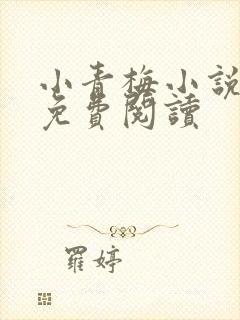 小青梅小說
免費閱讀
羅婷